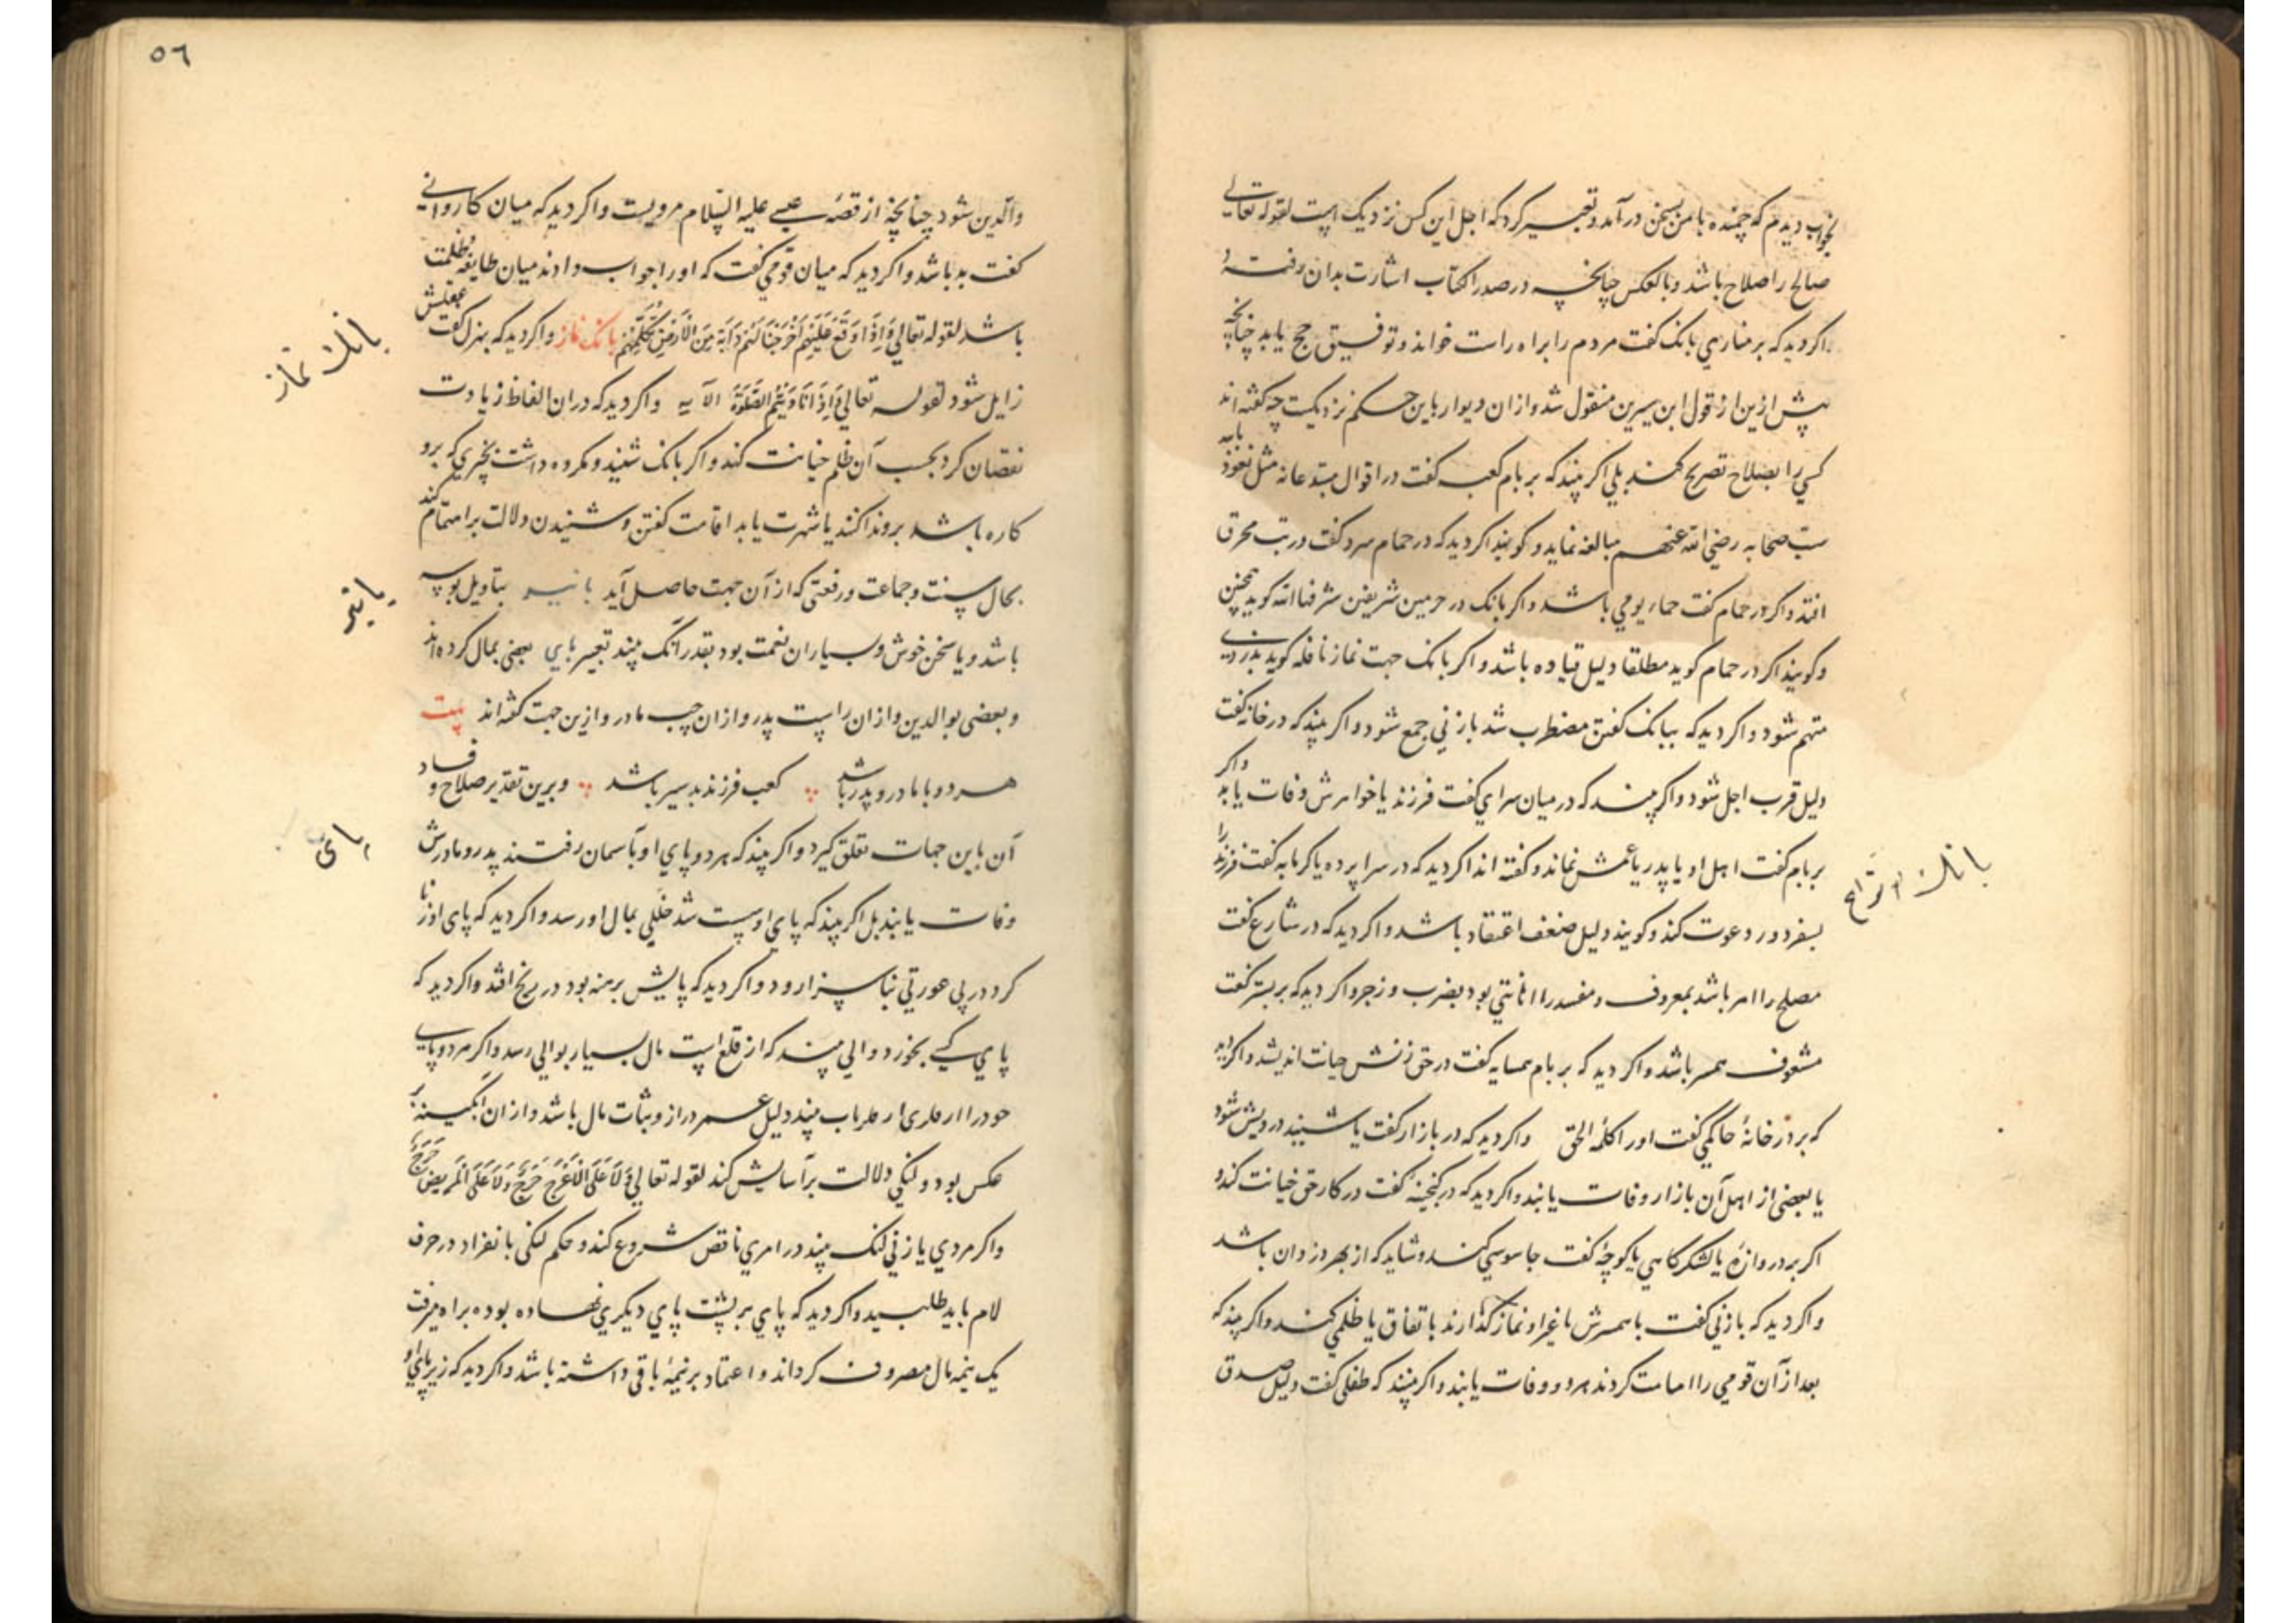 بخواب دیدم که چمنده با من بسخن در آمد و تعبیر کرد که اجل این کس نزدیک است لقوله تعالی
صالح را صلاح باشد و بالعکس چنانچه در صدر کتاب اشارت بدان رفت و
اکر دید که بر مناره‌ی بانک کفت مردم را براه راست خواند و توفیق حج یابد چنانچه
پیش ازین از قول ابن سیرین منقول شد و از ان دیوار باین حکم نزدیکست چه کفته‌اند
کسی را بصلاح تصریح کند بلی اکر بیند که بر بام کعبه کفت در اقوال مبتدعانه مثل نعوذ بالله
سبّ صحابه رضی الله عنهم مبالغه نماید و کویند اکر دید که در حمام سرد کفت در تب محرق
افتد و اکر در حمام کفت حماء یومی باشد و اکر بانک در حرمین شریفین شرفها الله کوید همچنین
و کویند اکر در حمام کوید مطلقا دلیل قیاده باشد و اکر بانک جهت نماز نافله کوید بدزدی
متهم شود و اکر دید که ببانک کفتن مضطرب شد بازنی جمع شود و اکر بیند که در خانه کفت
دلیل قرب اجل شود و اکر بیند که در میان سرای کفت فرزند یا خواهرش وفات یابد و اکر
بر بام کفت اهل او یا پدر یا عمش نماند و کفته اند اکر دید که در سراپرده یا کرمابه کفت فرزند را
بسفر دور دعوت کند و کویند دلیل ضعف اعتقاد باشد و اکر دید که در شارع کفت
مصلح را امر باشد بمعروف و مفسد را اهانتی بود بضرب و زجر و اکر دید که بر بستر کفت
مشعوف همسر باشد و اکر دید که بر بام همسایه کفت در حق زنش خیانت اندیشد و اکر دید
که بر در خانهٔ حاکمی کفت اورا کلمه الحق و اکر دید که در بازار کفت یا شنید درویش شود
یا بعضی از اهل آن بازار وفات یابند و اکر دید که در کنجینه کفت در کار حق خیانت کند و
اکر بر دروازهٔ یا لشکرکاهی یا کوچهٔ کفت جاسوسی کند و شاید که از بهر دزدان باشد
و اکر دید که بازنی کفت با همسرش با غیر او نماز کذارند باتفاق یا ظلمی کند و اکر بیند که
بعد از آن قومی را امامت کردند هر دو وفات یابند و اکر بیند که طفلی کفت دلیل صدق
بانک
٥٦
والدین شود چنانچه از قصهٔ عیسی علیه السلام مرویست و اکر دید که میان کاروانی
کفت بد باشد و اکر دید که میان قومی کفت که اورا جواب دادند میان طایفهٔ ظلمت
باشد لقوله تعالی وَاِذَا وَقَعَ عَلَیْهِمْ اَخْرَجْنَا لَهُمْ دَآبَّةً مِنَ الْاَرْضِ تُکَلِّمُهُمْ بانک نماز و اکر دید که بهزل کفت عقلش
زایل شود لقوله تعالی وَاِذَا نَادَیْتُمْ اِلَی الصَّلٰوةِ الآیه و اکر دید که در ان الفاظ زیادت
نقصان کرد بحسب آن ظلم خیانت کند و اکر بانک شنید و مکروه داشت بچیزی که برو
کاره باشد بروند اکنند یا شهرت یابد اقامت کفتن و شنیدن دلالت بر اهتمام کند
بحال سنت و جماعت و رفعتی که از آن جهت حاصل آید بانیر بتاویل بوسه
باشد و یا سخن خوش و بسیاران نعمت بود بقدر آنک بیند تعبیر پای بعضی بمال کرده‌اند
و بعضی بوالدین و از ان راست پدر و از ان چپ مادر و ازین جهت کفته‌اند بیت
هر دو پا مادر و پدر باشد کعب فرزند بد سیر باشد و برین تقدیر صلاح و فساد
آن باین جهات تعلق کیرد و اکر بیند که هر دو پای او بآسمان رفتند پدر و مادرش
وفات یابند بل اکر بیند که پای او سست شد خللی بمال او رسد و اکر دید که پای او زنا
کرد در پی عورتی بناسزا رود و اکر دید که پایش برهنه بود در رنج افتد و اکر دید که
پای کسی بخورد و الی بیند که از قلع است مال بسیار بوالی رسد و اکر مرد و پای
خود را بیند دلیل عمر دراز و ثبات مال باشد و از ان آبکینه بر
عکس بود و لنکی دلالت بر آسایش کند لقوله تعالی وَلَا عَلَی الْاَعْرَجِ حَرَجٌ وَلَا عَلَی الْمَرِیضِ حَرَجٌ
و اکر مردی یا زنی لنک بیند در امری ناقص شروع کند و حکم لنکی بانفراد در حرف
لام باید طلبید و اکر دید که پای بر پشت پای دیکری نهاده بود و براه میرفت
یک نیمه مال مصروف کرداند و اعتماد بر نیمهٔ باقی داشته باشد و اکر دید که زیر پای او
بانک نماز
بانیر
پای